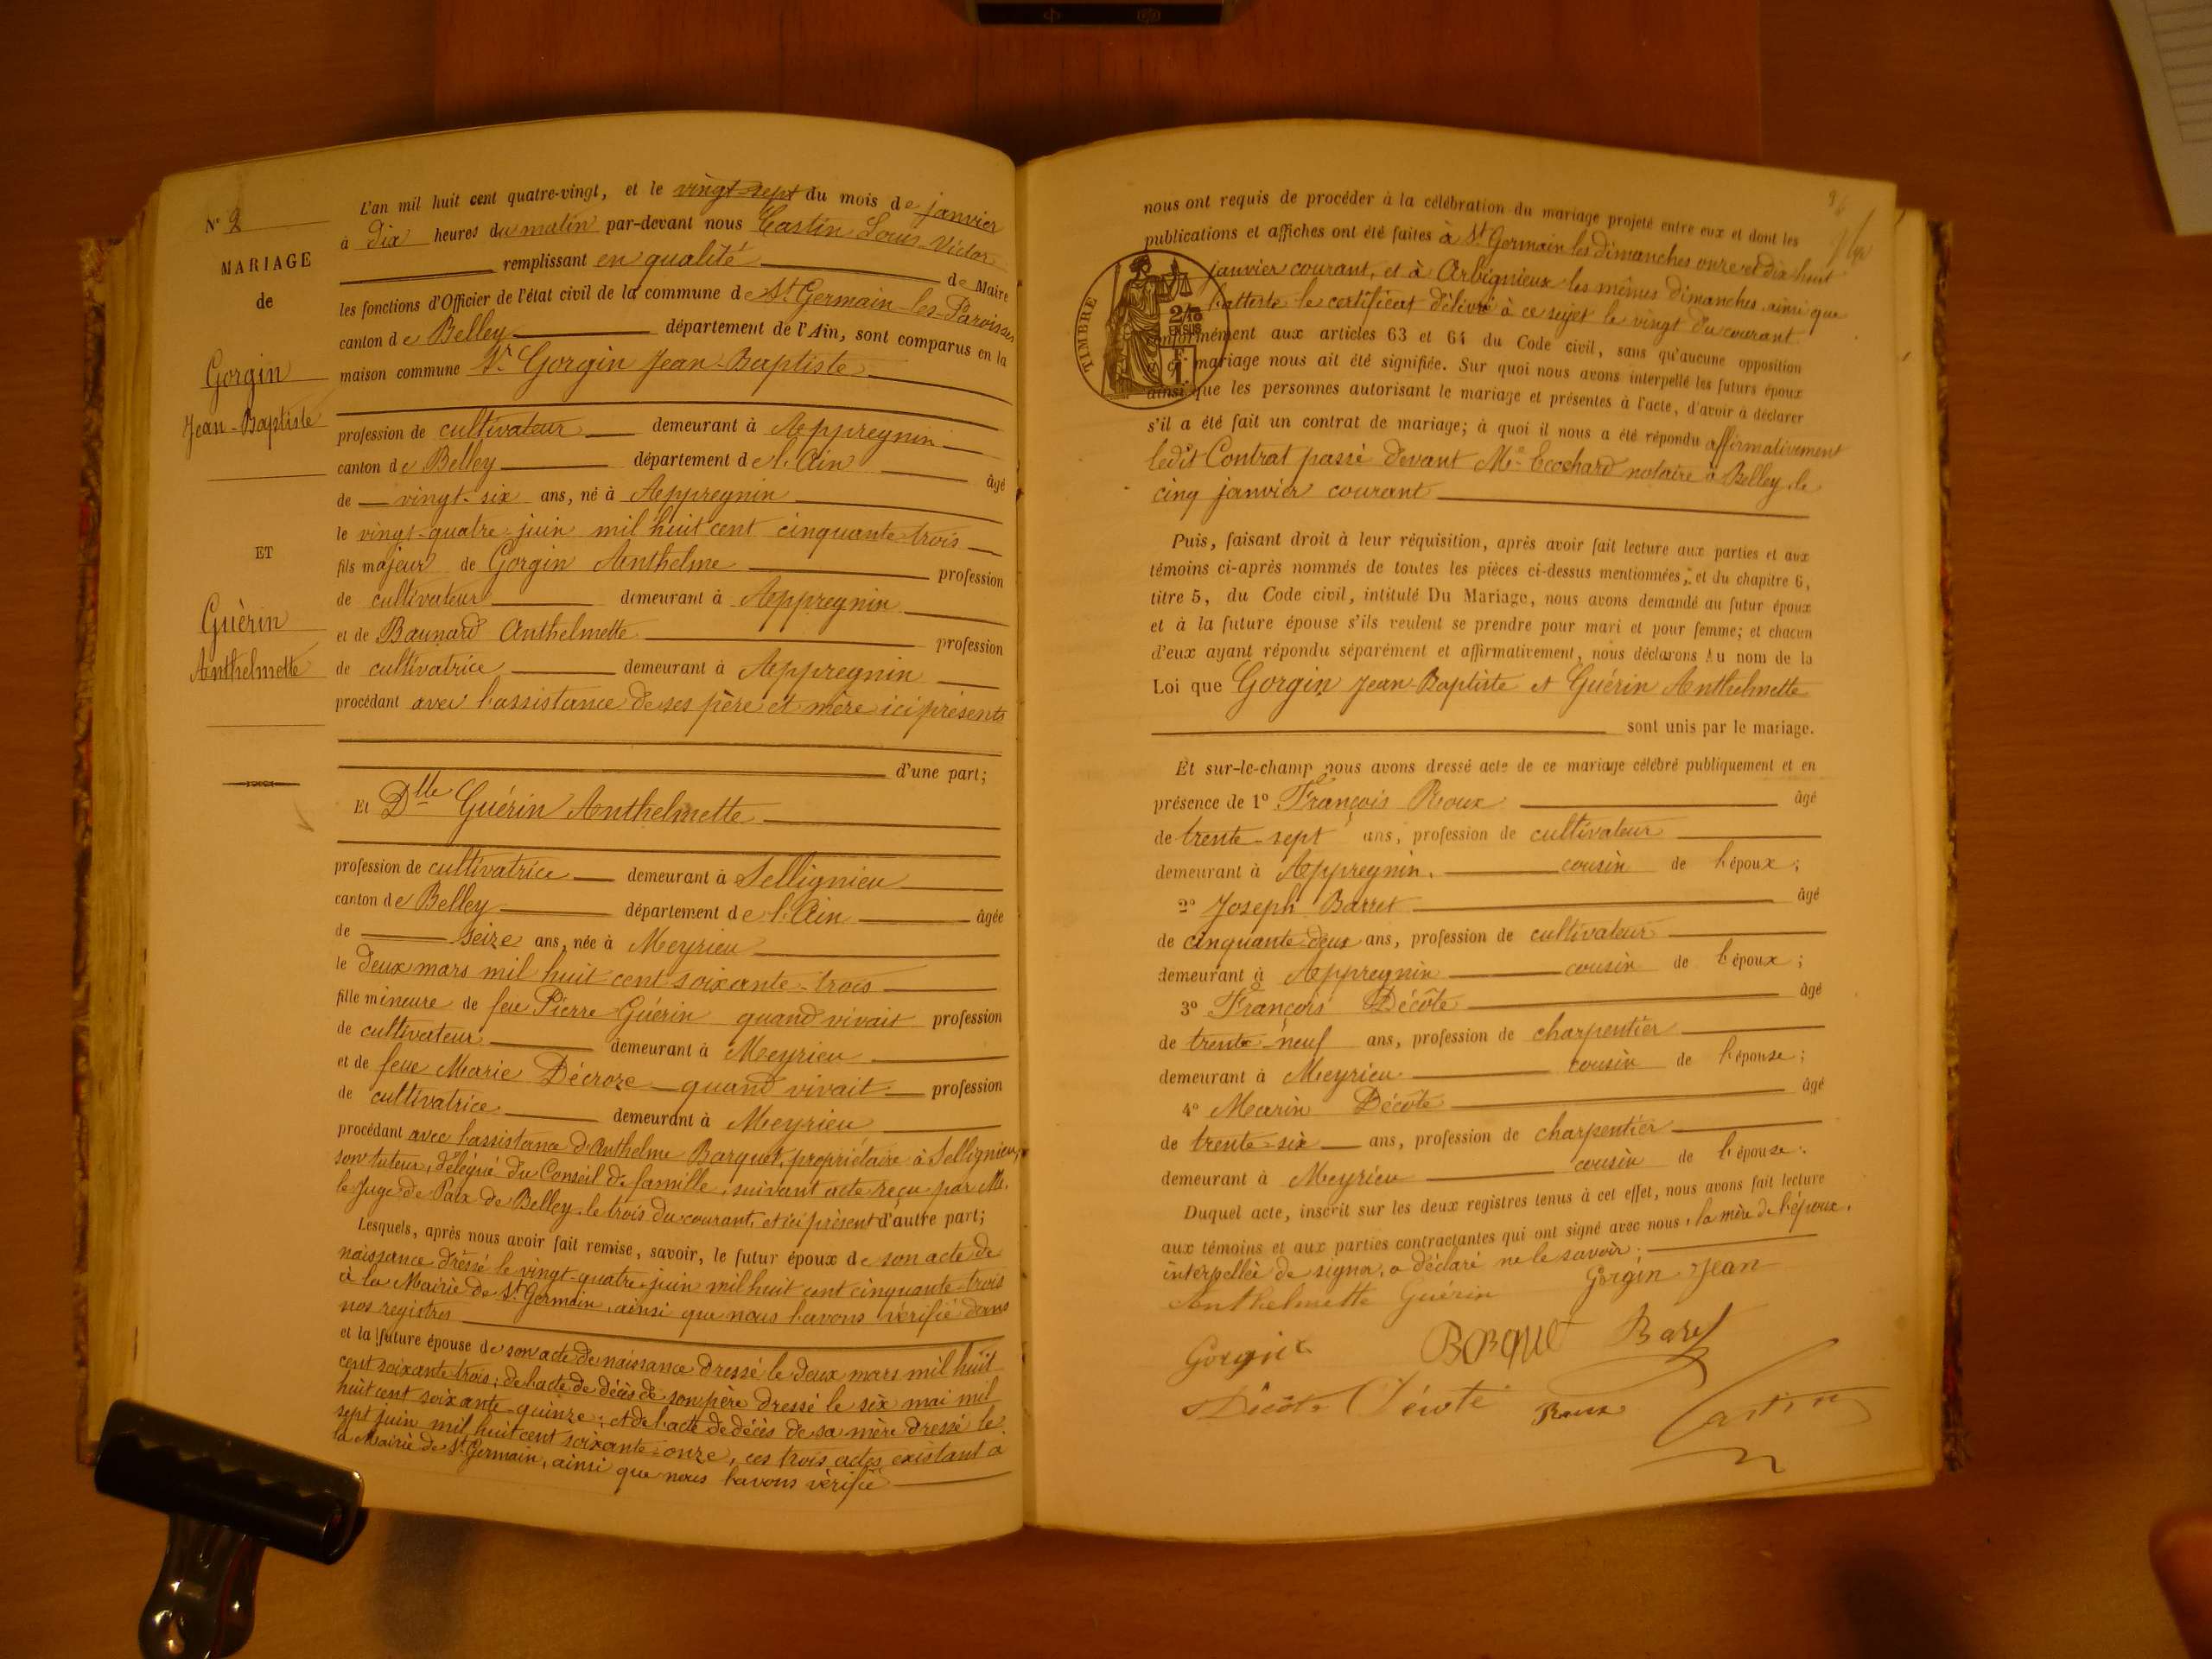 N° 2
MARIAGE
de
Gorgin
Jean-Baptiste
ET
Guérin
Anthelmette
L'an mil huit cent quatre-vingt, et le vingt-sept du mois de janvier
à dix heures du matin par-devant nous Castin Louis Victor
remplissant en qualité de Maire
les fonctions d'Officier de l'état civil de la commune de St Germain-les-Paroisses
canton de Belley département de l'Ain, sont comparus en la
maison commune Sr Gorgin Jean-Baptiste
profession de cultivateur demeurant à Appregnin
canton de Belley département de l'Ain âgé
de vingt-six ans, né à Appregnin
le vingt-quatre juin mil huit cent cinquante-trois
fils majeur de Gorgin Anthelme profession
de cultivateur demeurant à Appregnin
et de Baunard Anthelmette profession
de cultivatrice demeurant à Appregnin
procédant avec l'assistance de ses père et mère ici présents
d'une part;
Et Dlle Guérin Anthelmette
profession de cultivatrice demeurant à Sellignieu
canton de Belley département de l'Ain âgée
de seize ans, née à Meyrieu
le deux mars mil huit cent soixante-trois
fille mineure de feu Pierre Guérin quand vivait profession
de cultivateur demeurant à Meyrieu
et de feue Marie Décroze quand vivait profession
de cultivatrice demeurant à Meyrieu
procédant avec l'assistance d'Anthelme Barquet, propriétaire à Sellignieu,
son tuteur, délégué du Conseil de famille, suivant acte reçu par M.
le Juge de Paix de Belley, le trois du courant, et ici présent d'autre part;
Lesquels, après nous avoir fait remise, savoir, le futur époux de son acte de
naissance dressé le vingt-quatre juin mil huit cent cinquante-trois
à la Mairie de St Germain, ainsi que nous l'avons vérifié dans
nos registres
et la future épouse de son acte de naissance dressé le deux mars mil huit
cent soixante trois; de l'acte de décès de son père dressé le six mai mil
huit cent soixante-quinze; et de l'acte de décès de sa mère dressé le
sept juin mil huit cent soixante-onze, ces trois actes existant à
la Mairie de St Germain, ainsi que nous l'avons vérifié
nous ont requis de procéder à la célébration du mariage projeté entre eux et dont les
publications et affiches ont été faites à St Germain les dimanches onze et dix-huit
janvier courant, et à Arbignieux les mêmes dimanches, ainsi que
l'atteste le certificat délivré à ce sujet le vingt du courant
TIMBRE
2/10
EN SUS
conformément aux articles 63 et 64 du Code civil, sans qu'aucune opposition
mariage nous ait été signifiée. Sur quoi nous avons interpellé les futurs époux
ainsi que les personnes autorisant le mariage et présentes à l'acte, d'avoir à déclarer
s'il a été fait un contrat de mariage; à quoi il nous a été répondu affirmativement
ledit Contrat passé devant Me Cochard notaire à Belley, le
cinq janvier courant
Puis, faisant droit à leur réquisition, après avoir fait lecture aux parties et aux
témoins ci-après nommés de toutes les pièces ci-dessus mentionnées, et du chapitre 6,
titre 5, du Code civil, intitulé Du Mariage, nous avons demandé au futur époux
et à la future épouse s'ils veulent se prendre pour mari et pour femme; et chacun
d'eux ayant répondu séparément et affirmativement, nous déclarons Au nom de la
Loi que Gorgin Jean-Baptiste et Guérin Anthelmette
sont unis par le mariage.
Et sur-le-champ nous avons dressé acte de ce mariage célébré publiquement et en
présence de 1° François Roux âgé
de trente-sept ans, profession de cultivateur
demeurant à Appregnin, cousin de l'époux;
2° Joseph Barret âgé
de cinquante-deux ans, profession de cultivateur
demeurant à Appregnin cousin de l'époux;
3° François Décôte âgé
de trente-neuf ans, profession de charpentier
demeurant à Meyrieu cousin de l'épouse;
4° Marin Décôte âgé
de trente-six ans, profession de charpentier
demeurant à Meyrieu cousin de l'épouse.
Duquel acte, inscrit sur les deux registres tenus à cet effet, nous avons fait lecture
aux témoins et aux parties contractantes qui ont signé avec nous, la mère de l'époux,
interpellée de signer, a déclaré ne le savoir.
Anthelmette Guérin Gorgin Jean
Gorgin Borquet Baret
Décôte Décôté Roux Castin